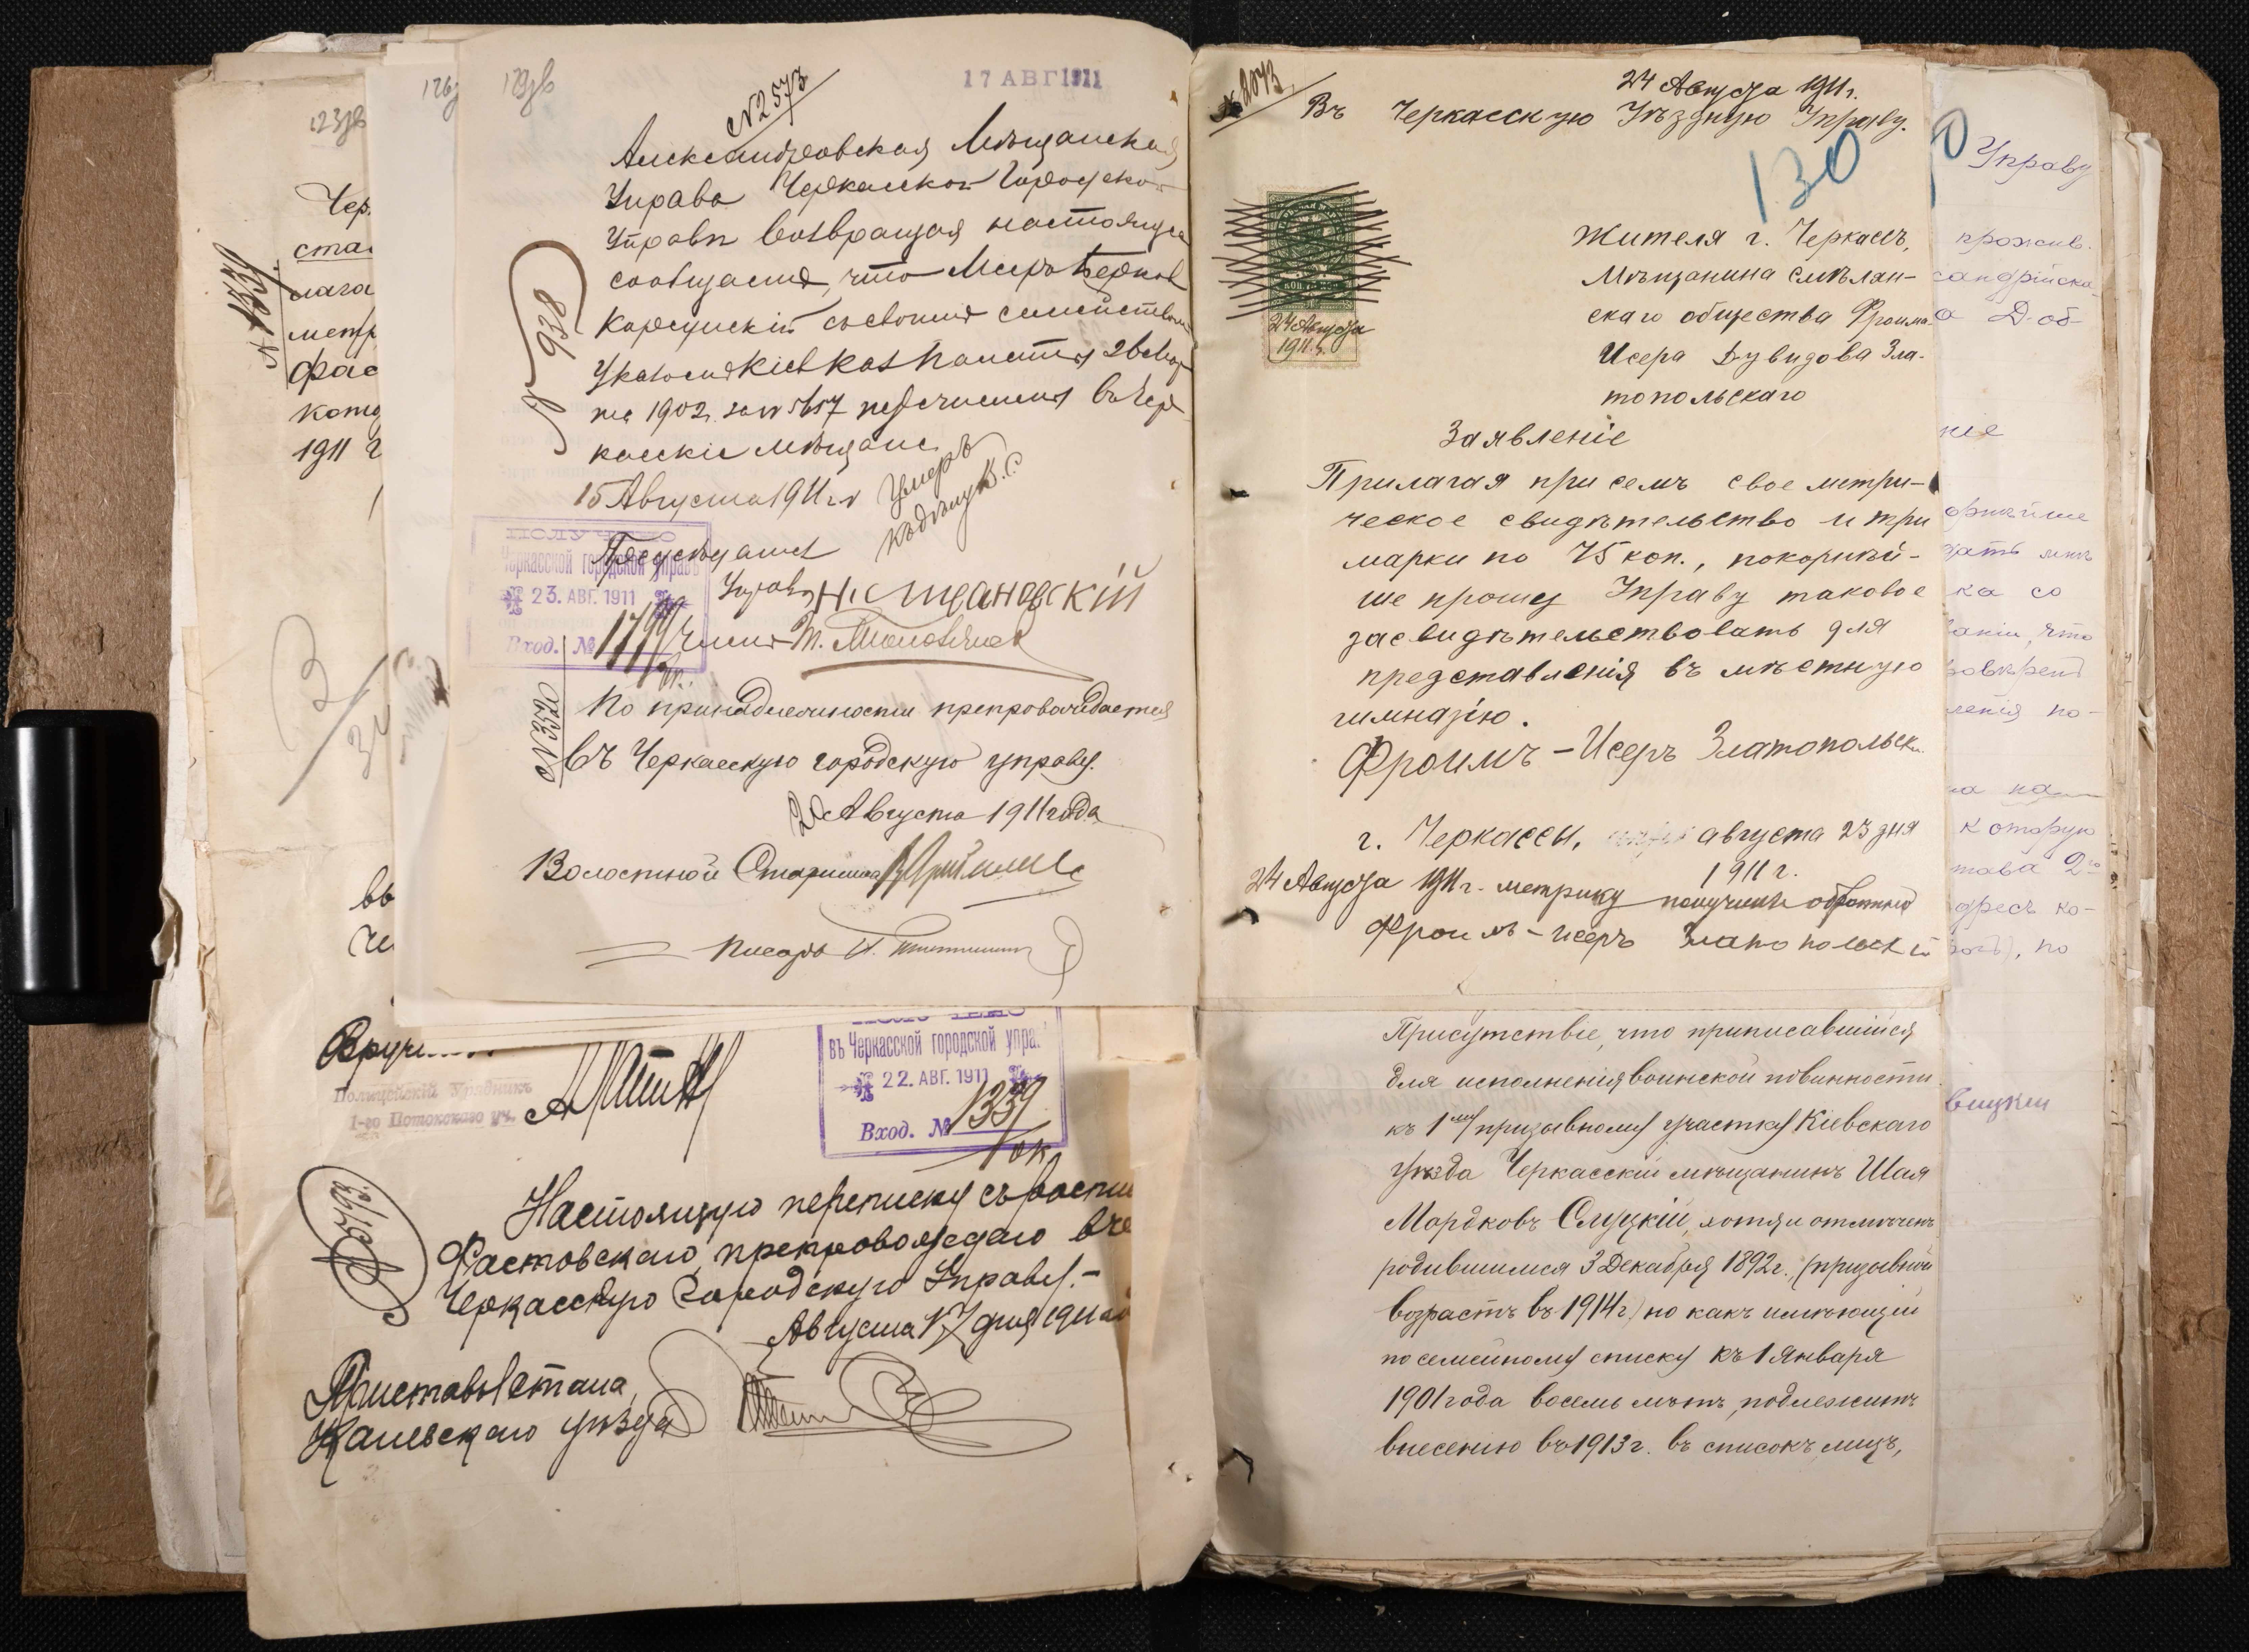 129зв
17 АВГ 1911
№2573
Александровская Мещанская
Управа Черкасской Городской
Управѣ возвращая настоящее
сообщаетъ, что Меръ Берковъ
Корсунскій съ своимъ семействомъ
Указомъ Кіев Каз Палаты 2 Мар
та 1902 г. за № перечисленъ въ Чер
касскіе мѣщане
№ 938
15 Августа 1911 г.
Умеръ
ПОЛУЧЕНО
Черкасской городской управѣ
23. АВГ. 1911
Вход. № 1799
Предсѣдатель
Управы
№3520
По принадлежности препровождается
въ Черкасскую городскую управу.
20 Августа 1911 года
Волостной Старшина
Писарь
126з
123зв
Чер.
ста
№ 1339
лага
метр
фас
1911 г
вы
Че
Вручи
Полицейскій Урядникъ
1-го Потокскаго уч.
въ Черкасской городской упра.
22. АВГ. 1911
Вход. № 1339
№3793
Настоящую переписку съ распи
Фастовскаго, препровождаю въ
Черкасскую Городскую Управу.-
Августа 17 дня 1911
Приставъ 1 стана
Каневскаго уѣзда
24 Августа 1911 г.
Въ Черкасскую Уѣздную Управу.
130
24 Августа
1911 г.
Жителя г. Черкассъ,
Мѣщанина Смѣлян-
скаго общества Фроима
Исера Дувидова Зла-
топольскаго
Заявленіе
Прилагая при семъ свое метри-
ческое свидѣтельство и три
марки по 75 коп., покорнѣй-
ше прошу Управу таковое
засвидѣтельствовать для
представленія въ мѣстную
гимназію.
Фроимъ-Исеръ Златопольскій
г. Черкассы, августа 23 дня
1911 г.
24 Августа 1911 г. метрику получилъ обратно
Фроимъ-Исеръ Златопольскій
Присутствіе, что приписавшійся
для исполненія воинской повинности
къ 1му призывному участку Кіевскаго
уѣзда Черкасскій мѣщанинъ Шая
Мордковъ Слуцкій, хотя и отмѣченъ
родившимся 3 Декабря 1892 г., (призывной
возрастъ въ 1914 г.) но какъ имѣющій
по семейному списку къ 1 Января
1901 года восемь лѣтъ, подлежитъ
внесенію въ 1913 г. въ списокъ лицъ,
Управу
прожив.
ка со
что
ленія по-
на на
которую
това 2го
адресъ ко-
по